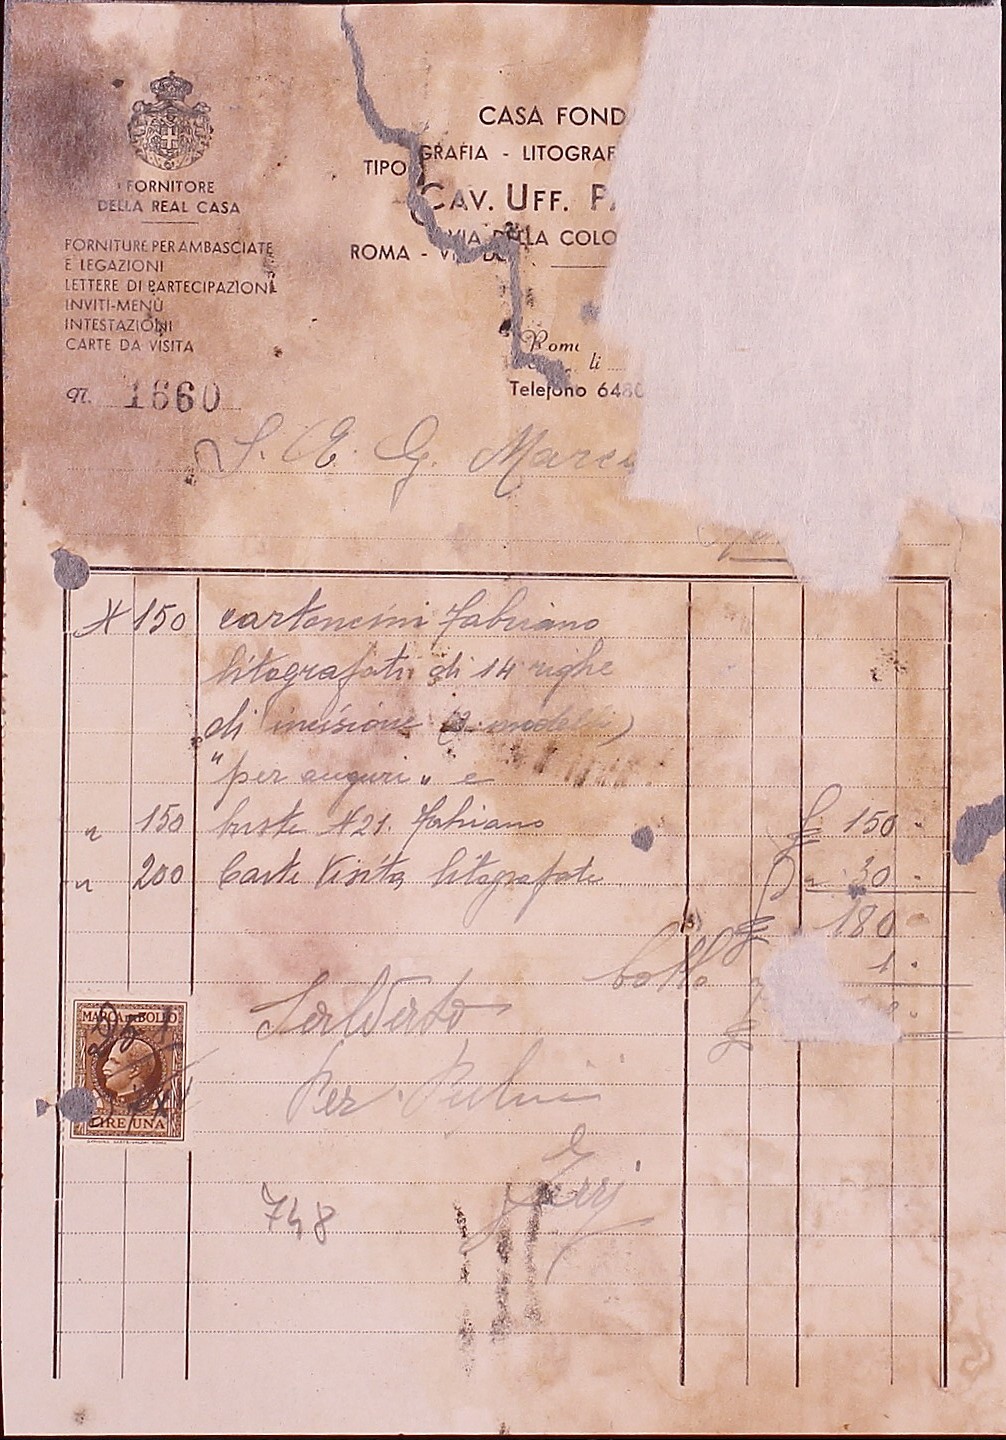 FORNITORE
DELLA REAL CASA
FORNITURE PER AMBASCIATE
E LEGAZIONI
LETTERE DI PARTECIPAZIONI
INVITI-MENÙ
INTESTAZIONI
CARTE DA VISITA
N. 1660
CASA FOND
TIPOGRAFIA - LITOGRAF
CAV. UFF. PA
VIA DELLA COLO
ROMA - VIA DE
Roma
li
Telefono 6480
S. E. G. Marco
N 150 cartoncini Fabriano
litografati di 14 righe
di incisione (3 modelli)
"per auguri" e
" 150 buste N 21. Fabriano £ 150.
" 200 Carte Visita litografate " 30.
£ 180
bollo 1.
£
MARCA DA BOLLO
LIRE UNA
Saldato
Per
748